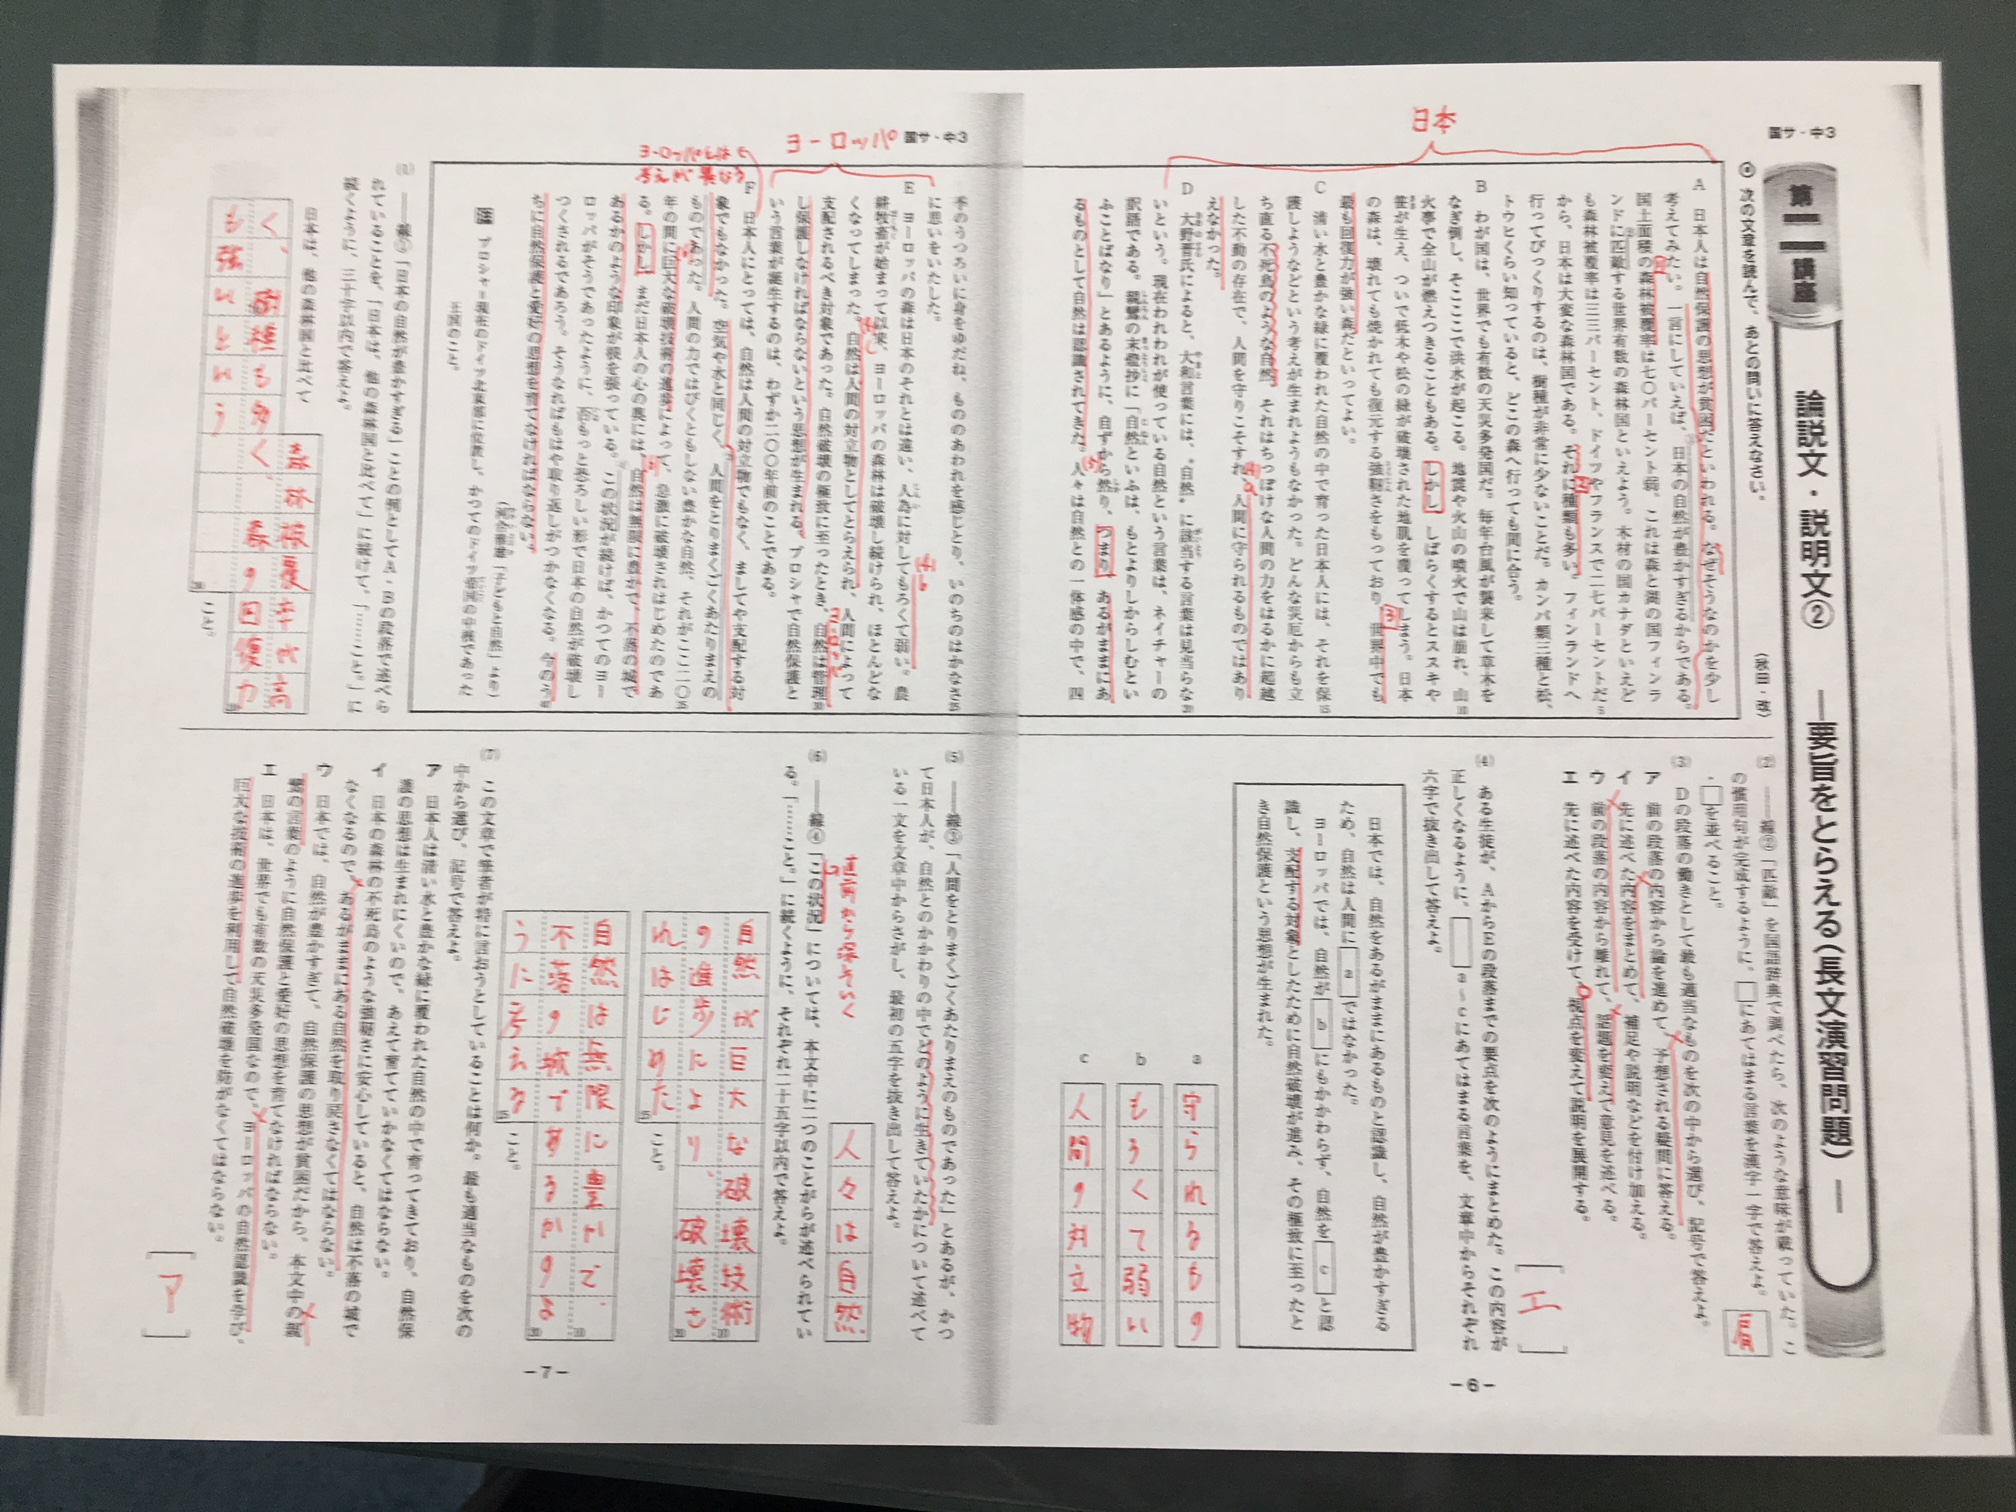 国サ・中3
第二講座 論説文・説明文② ―要旨をとらえる(長文演習問題)―
● 次の文章を読んで、あとの問いに答えなさい。
(秋田・改)
日本
A 日本人は自然保護の思想が貧困だといわれる。なぜそうなのかを少し
考えてみたい。一言にしていえば、日本の自然が豊かすぎるからである。
国土面積の森林被覆率は七〇パーセント弱。これは森と湖の国フィンラ
ンドに匹敵する世界有数の森林国といえよう。木材の国カナダといえど
も森林被覆率は三三パーセント、ドイツやフランスで二七パーセントだ
から、日本は大変な森林国である。それに種類も多い。フィンランドへ
行ってびっくりするのは、樹種が非常に少ないことだ。カンバ類三種と松、
トウヒくらい知っていると、どこの森へ行っても間に合う。
B わが国は、世界でも有数の天災多発国だ。毎年台風が襲来して草木を
なぎ倒し、そこここで洪水が起こる。地震や火山の噴火で山は崩れ、山
火事で全山が燃えつきることもある。しかし、しばらくするとススキや
笹が生え、ついで低木や松の緑が破壊された地肌を覆ってしまう。日本
の森は、壊れても焼かれても復元する強靭さをもっており、世界中でも
最も回復力が強い森だといってよい。
C 清い水と豊かな緑に覆われた自然の中で育った日本人には、それを保
護しようなどという考えが生まれようもなかった。どんな災厄からも立
ち直る不死鳥のような自然。それはちっぽけな人間の力をはるかに超越
した不動の存在で、人間を守りこそすれ、人間に守られるものではあり
えなかった。
D 大野晋氏によると、大和言葉には、“自然”に該当する言葉は見当らな
いという。現在われわれが使っている自然という言葉は、ネイチャーの
訳語である。親鸞の末燈抄に「自然といふは、もとよりしからしむとい
ふことばなり」とあるように、自ずから然り、つまり、あるがままにあ
るものとして自然は認識されてきた。人々は自然との一体感の中で、四
季のうつろいに身をゆだね、もののあわれを感じとり、いのちのはかなさ
に思いをいたした。
ヨーロッパ
E ヨーロッパの森は日本のそれとは違い、人為に対してもろくて弱い。農
耕牧畜が始まって以来、ヨーロッパの森林は破壊し続けられ、ほとんどな
くなってしまった。自然は人間の対立物としてとらえられ、人間によって
支配されるべき対象であった。自然破壊の極点に至ったとき、自然は管理
し保護しなければならないという思想が生まれる。プロシャで自然保護と
いう言葉が誕生するのは、わずか二〇〇年前のことである。
ヨーロッパとは
考えが異なる
F 日本人にとっては、自然は人間の対立物でもなく、ましてや支配する対
象でもなかった。空気や水と同じく、人間をとりまくごくあたりまえの
ものであった。人間の力ではびくともしない豊かな自然、それがここ二〇
年の間に巨大な破壊技術の進歩によって、急激に破壊されはじめたのであ
る。しかし、まだ日本人の心の奥には、自然は無限に豊かで、不落の城で
あるかのような印象が根を張っている。この状況が続けば、かつてのヨー
ロッパがそうであったように、もっと恐ろしい形で日本の自然が破壊し
つくされるであろう。そうなればもはや取り返しがつかなくなる。今のう
ちに自然保護と愛好の思想を育てなければならない。
(河合雅雄「子どもと自然」より)
注 プロシャ=現在のドイツ北東部に位置し、かつてのドイツ帝国の中核であった
王国のこと。
(1) ――線①「日本の自然が豊かすぎる」ことの例としてA・Bの段落で述べら
れていることを、「日本は、他の森林国と比べて」に続けて、「……こと。」に
続くように、三十字以内で答えよ。
日本は、他の森林国と比べて
森林被覆率が高
く、樹種も多く、森の回復力
も強いという
こと。
(2) ――線②「匹敵」を国語辞典で調べたら、次のような意味が載っていた。こ
の慣用句が完成するように、□にあてはまる言葉を漢字一字で答えよ。
・□を並べること。
肩
(3) Dの段落の働きとして最も適当なものを次の中から選び、記号で答えよ。
ア 前の段落の内容から論を進めて、予想される疑問に答える。
イ 先に述べた内容をまとめて、補足や説明などを付け加える。
ウ 前の段落の内容から離れて、話題を変えて意見を述べる。
エ 先に述べた内容を受けて、視点を変えて説明を展開する。
エ
(4) ある生徒が、AからEの段落までの要点を次のようにまとめた。この内容が
正しくなるように、□a～cにあてはまる言葉を、文章中からそれぞれ
六字で抜き出して答えよ。
日本では、自然をあるがままにあるものと認識し、自然が豊かすぎる
ため、自然は人間に a ではなかった。
ヨーロッパでは、自然が b にもかかわらず、自然を c と認
識し、支配する対象としたために自然破壊が進み、その極点に至ったと
き自然保護という思想が生まれた。
a 守られるもの
b もろくて弱い
c 人間の対立物
-6-
国サ・中3
(5) ――線③「人間をとりまくごくあたりまえのものであった」とあるが、かつ
て日本人が、自然とのかかわりの中でどのように生きていたかについて述べて
いる一文を文章中からさがし、最初の五字を抜き出して答えよ。
人々は自然
(6) ――線④「この状況」については、本文中に二つのことがらが述べられてい
る。「……こと。」に続くように、それぞれ二十五字以内で答えよ。
直前から探していく
自然が巨大な破壊技術
の進歩により、破壊さ
れはじめた
こと。
自然は無限に豊かで、
不落の城であるかのよ
うに考える
こと。
(7) この文章で筆者が特に言おうとしていることは何か。最も適当なものを次の
中から選び、記号で答えよ。
ア 日本人は清い水と豊かな緑に覆われた自然の中で育ってきており、自然保
護の思想は生まれにくいので、あえて育てていかなくてはならない。
イ 日本の森林の不死鳥のような強靭さに安心していると、自然は不落の城で
なくなるので、あるがままにある自然を取り戻さなくてはならない。
ウ 日本では、自然が豊かすぎて、自然保護の思想が貧困だから、本文中の親
鸞の言葉のように自然保護と愛好の思想を育てなければならない。
エ 日本は、世界でも有数の天災多発国なので、ヨーロッパの自然認識を学び、
巨大な技術の進歩を利用して自然破壊を防がなくてはならない。
ア
-7-